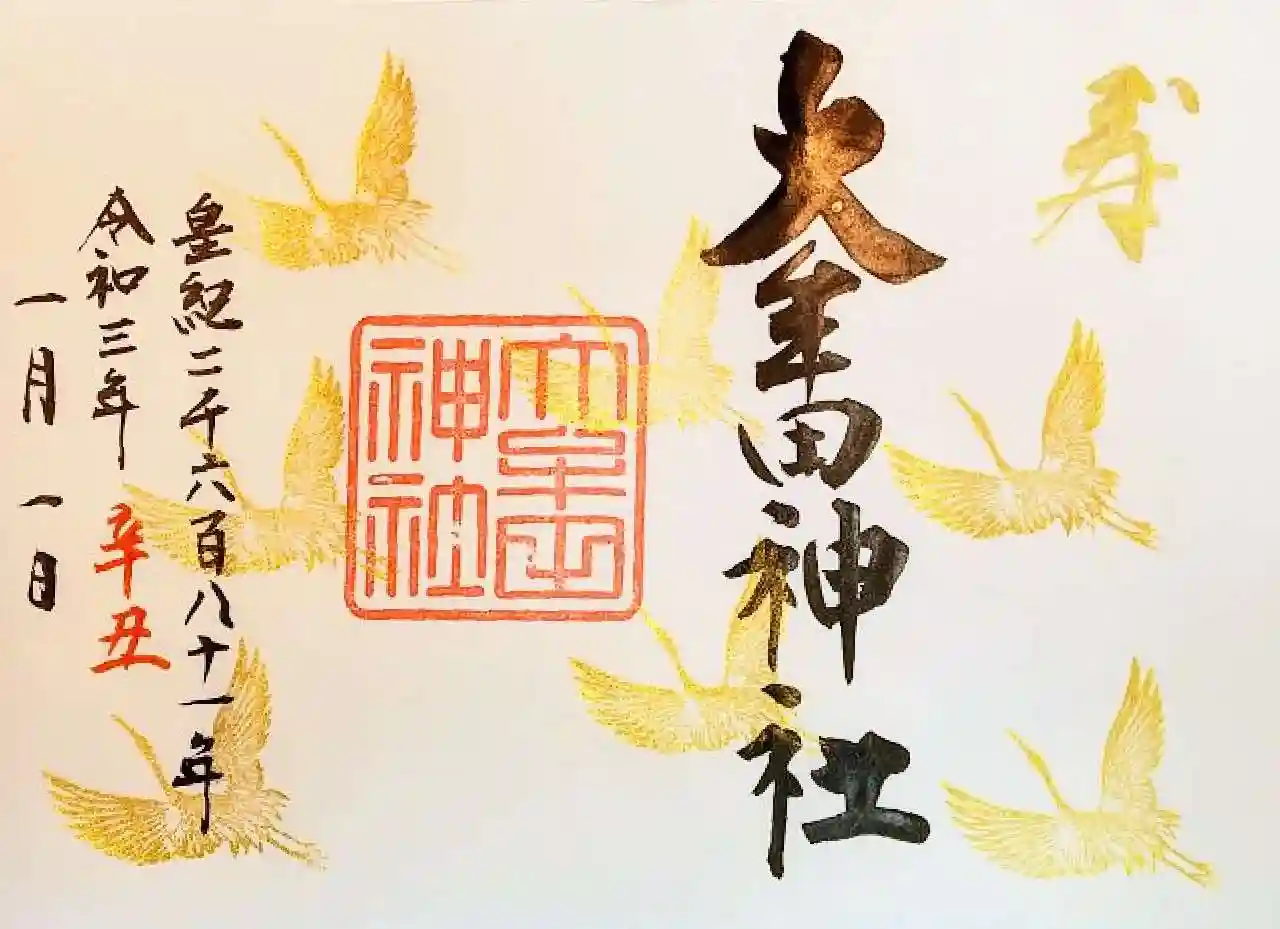 寿
大牟田神社
大牟田
神社
皇紀二千六百八十一年
令和三年 辛丑
一月一日